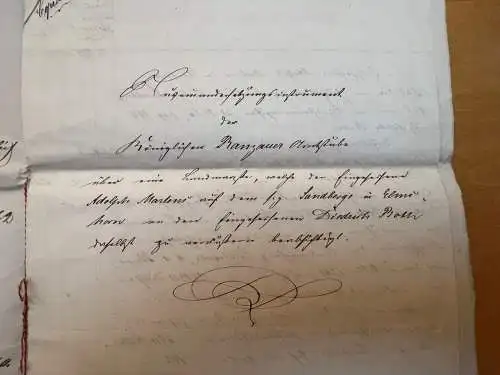 Auseinandersetzungsinstrument
der
Königlichen Ranzauer Amtstube
über eine Landwurte, welche der Eingesessene
Adolph Martens auf dem s. g. Sandberge in Elms-
horn an den Eingesessenen Diederich
daselbst zu veräußern beabsichtigt.